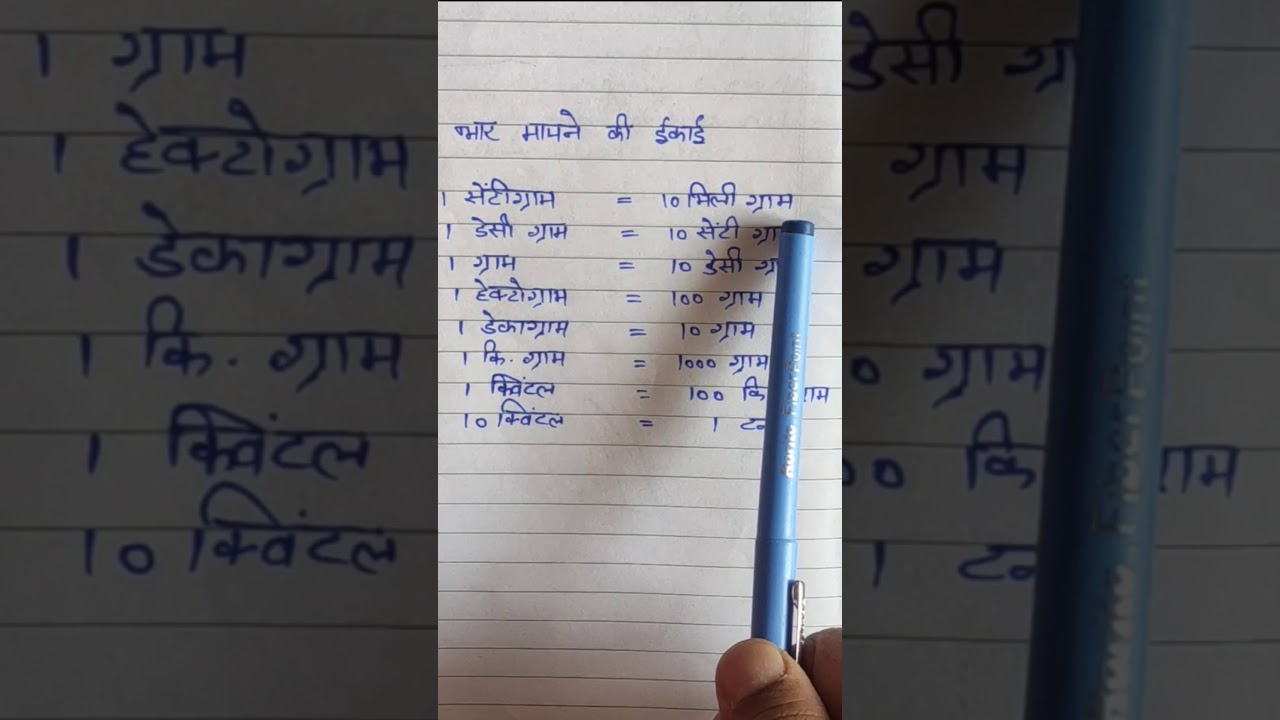 भार मापने की ईकाई
1 सेंटीग्राम = 10 मिली ग्राम
1 डेसी ग्राम = 10 सेंटी ग्रा
1 ग्राम = 10 डेसी ग्रा
1 हेक्टोग्राम = 100 ग्राम
1 डेकाग्राम = 10 ग्राम
1 कि. ग्राम = 1000 ग्राम
1 क्विंटल = 100 कि राम
10 क्विंटल = 1 टन